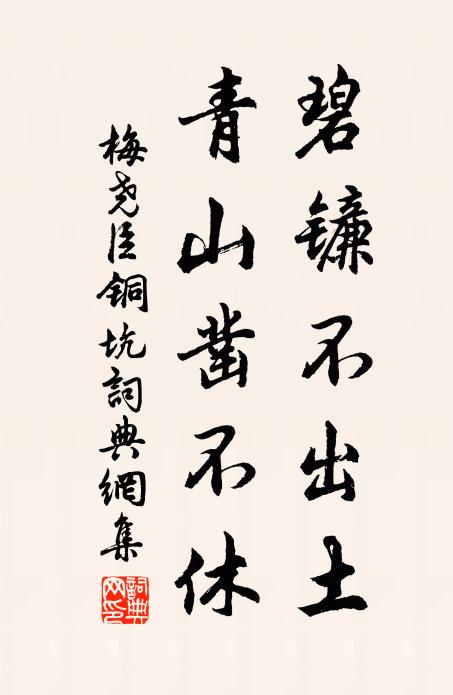 碧镰不出土
青山凿不休
梅尧臣铜坑詞典網集
詞典网印